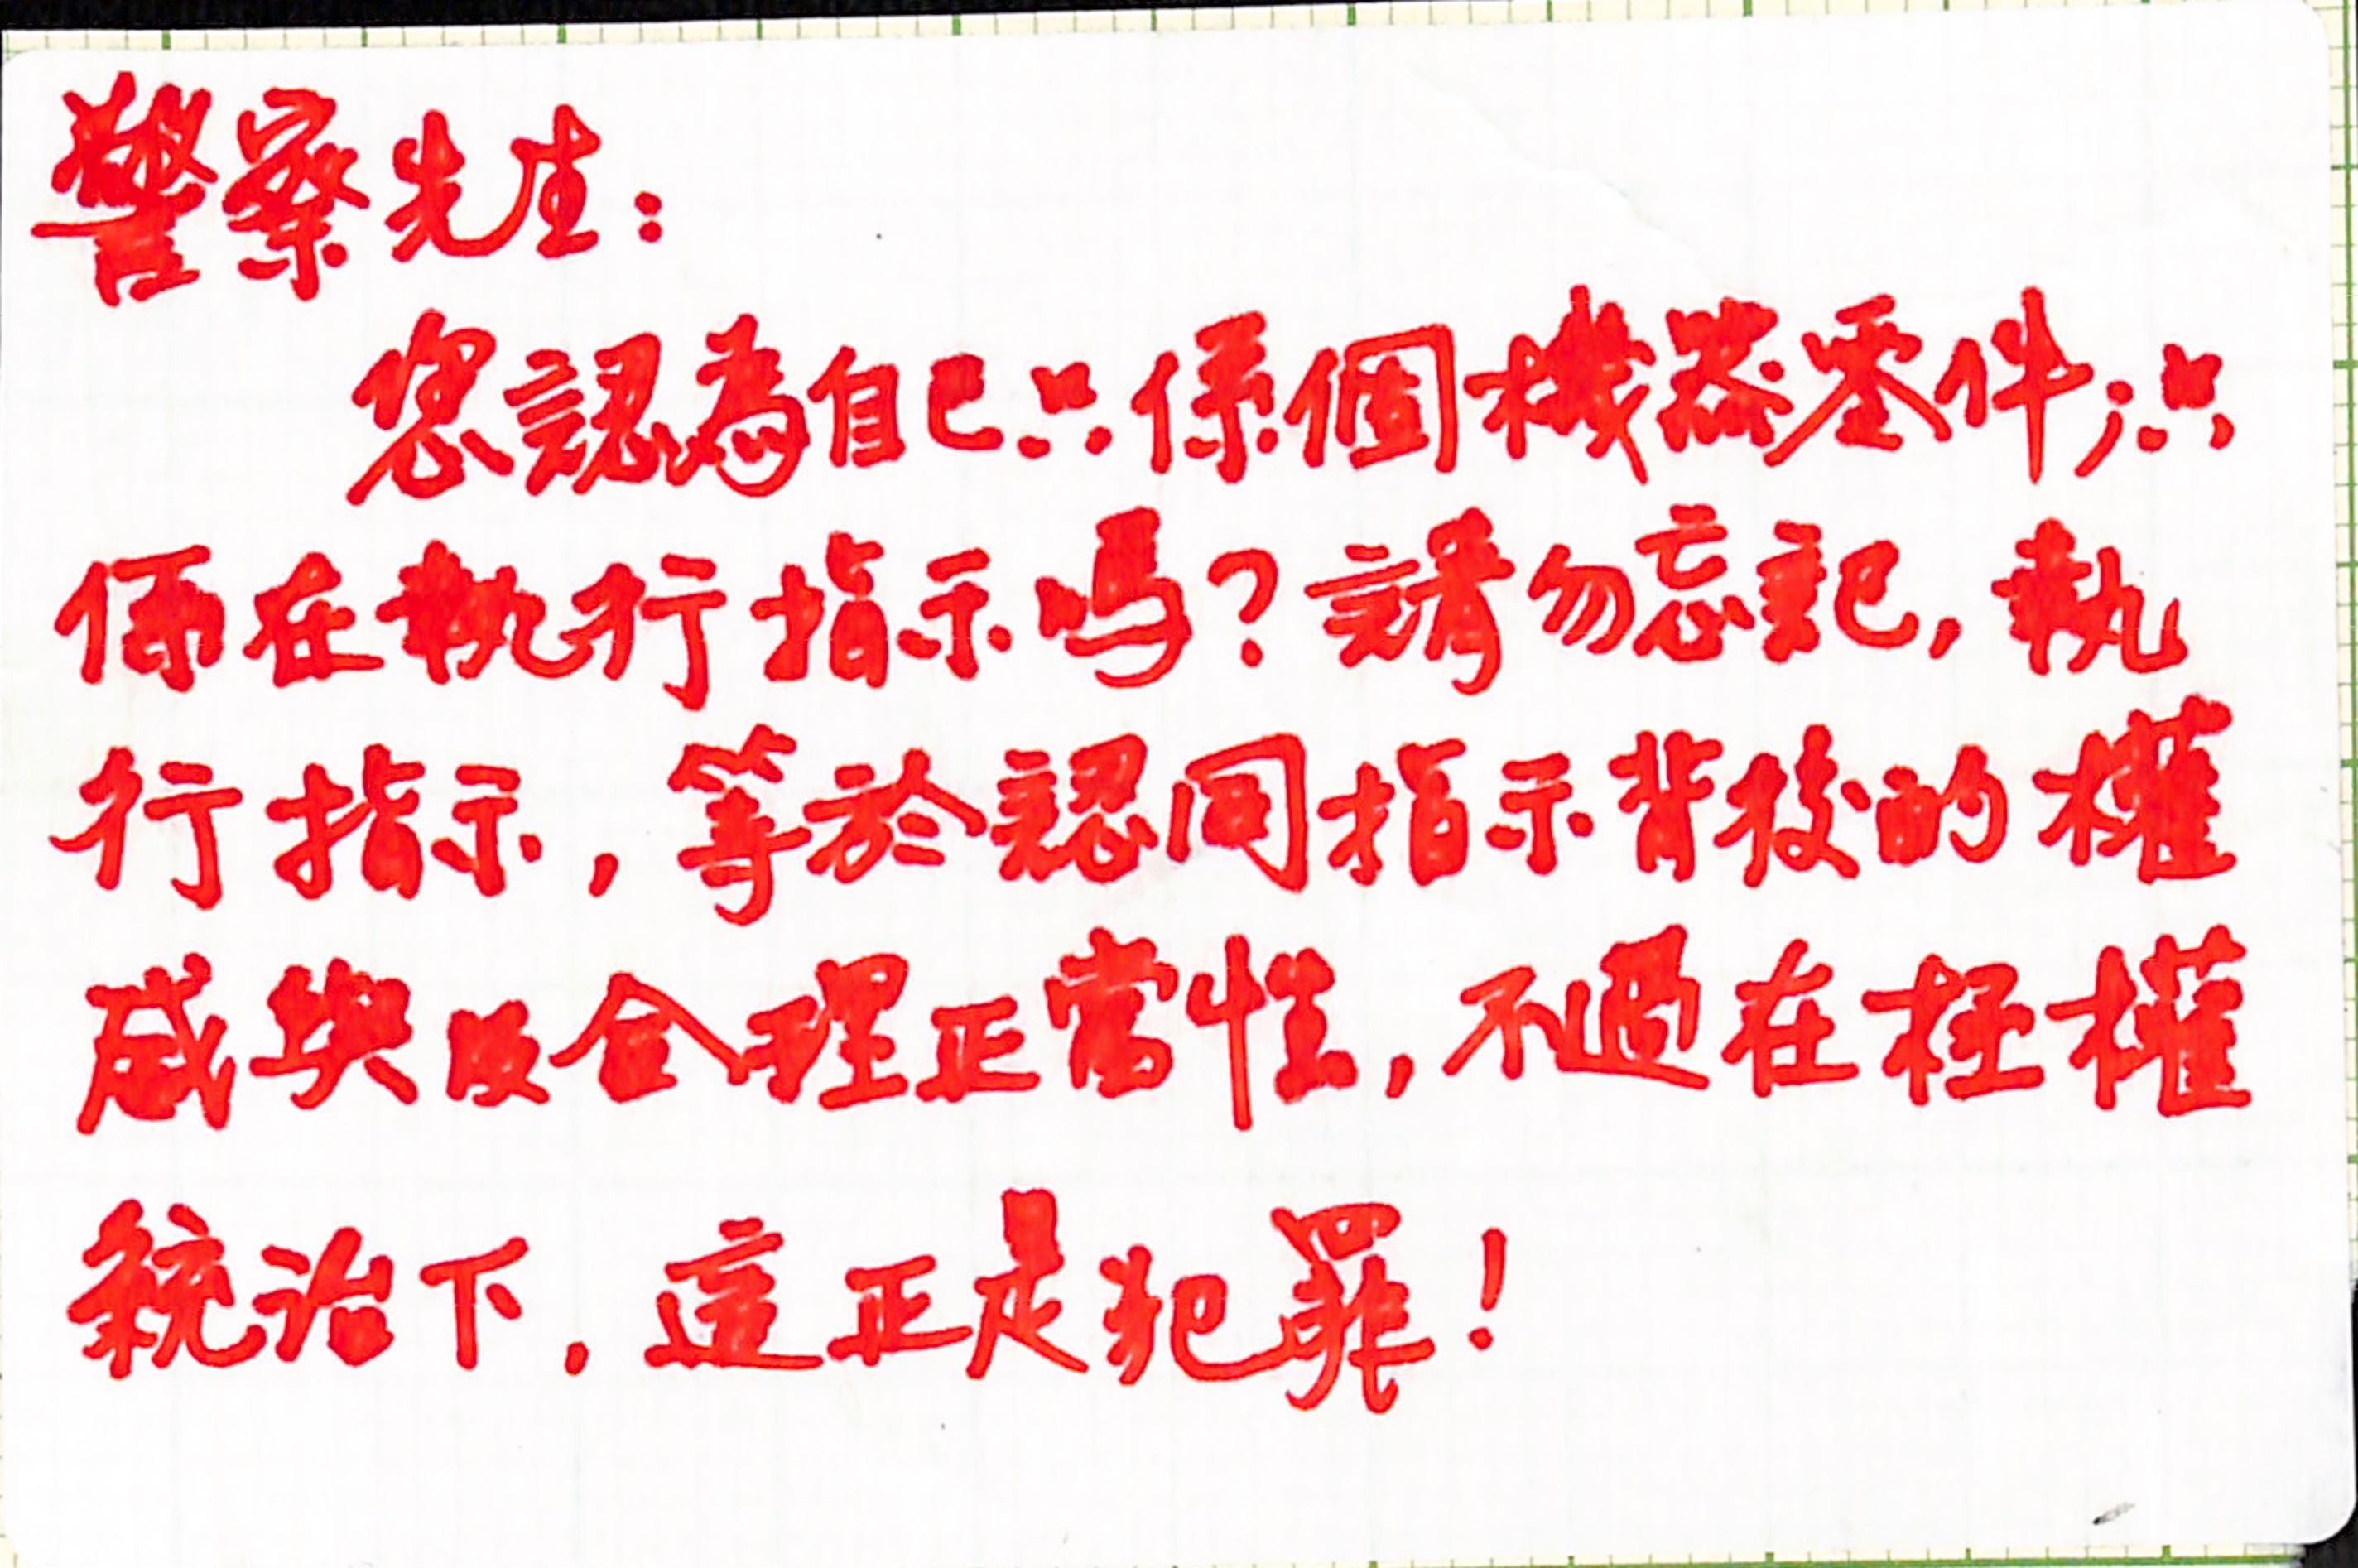 警察先生：
您認為自己只係個機器零件；只
係在執行指示嗎？請勿忘記，執
行指示，等於認同指示背後的權
威與及合理正當性，不過在極權
統治下，這正是犯罪！